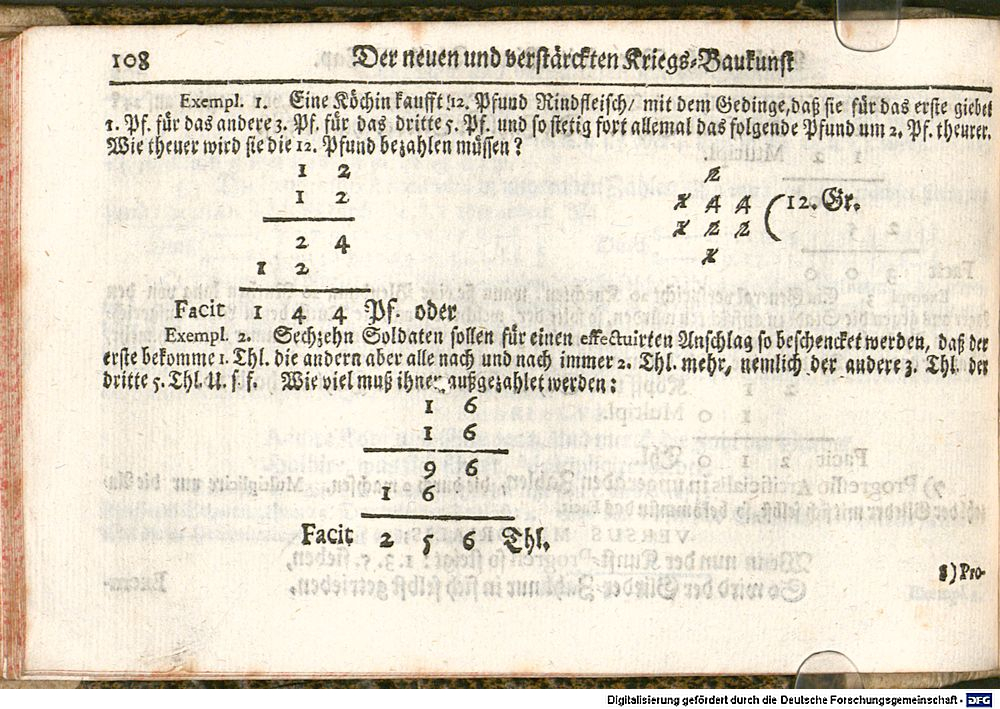 108 Der neuen und verstärckten Kriegs-Baukunst
Exempl. 1. Eine Köchin kaufft 12. Pfund Rindfleisch/ mit dem Gedinge, daß sie für das erste giebet
1. Pf. für das andere 3. Pf. für das dritte 5. Pf. und so stetig fort allemal das folgende Pfund um 2. Pf. theurer.
Wie theuer wird sie die 12. Pfund bezahlen müssen?
1 2
1 2
2 4
1 2
Facit 1 4 4 Pf. oder
2
1 4 4 (12. Gr.
1 2 2
1
Exempl. 2. Sechzehn Soldaten sollen für einen effectuirten Anschlag so beschencket werden, daß der
erste bekomme 1. Thl. die andern aber alle nach und nach immer 2. Thl. mehr, nemlich der andere 3. Thl. der
dritte 5. Thl. U. s. f. Wie viel muß ihnen außgezahlet werden:
1 6
1 6
9 6
1 6
Facit 2 5 6 Thl.
8) Pro-
Digitalisierung gefördert durch die Deutsche Forschungsgemeinschaft - DFG